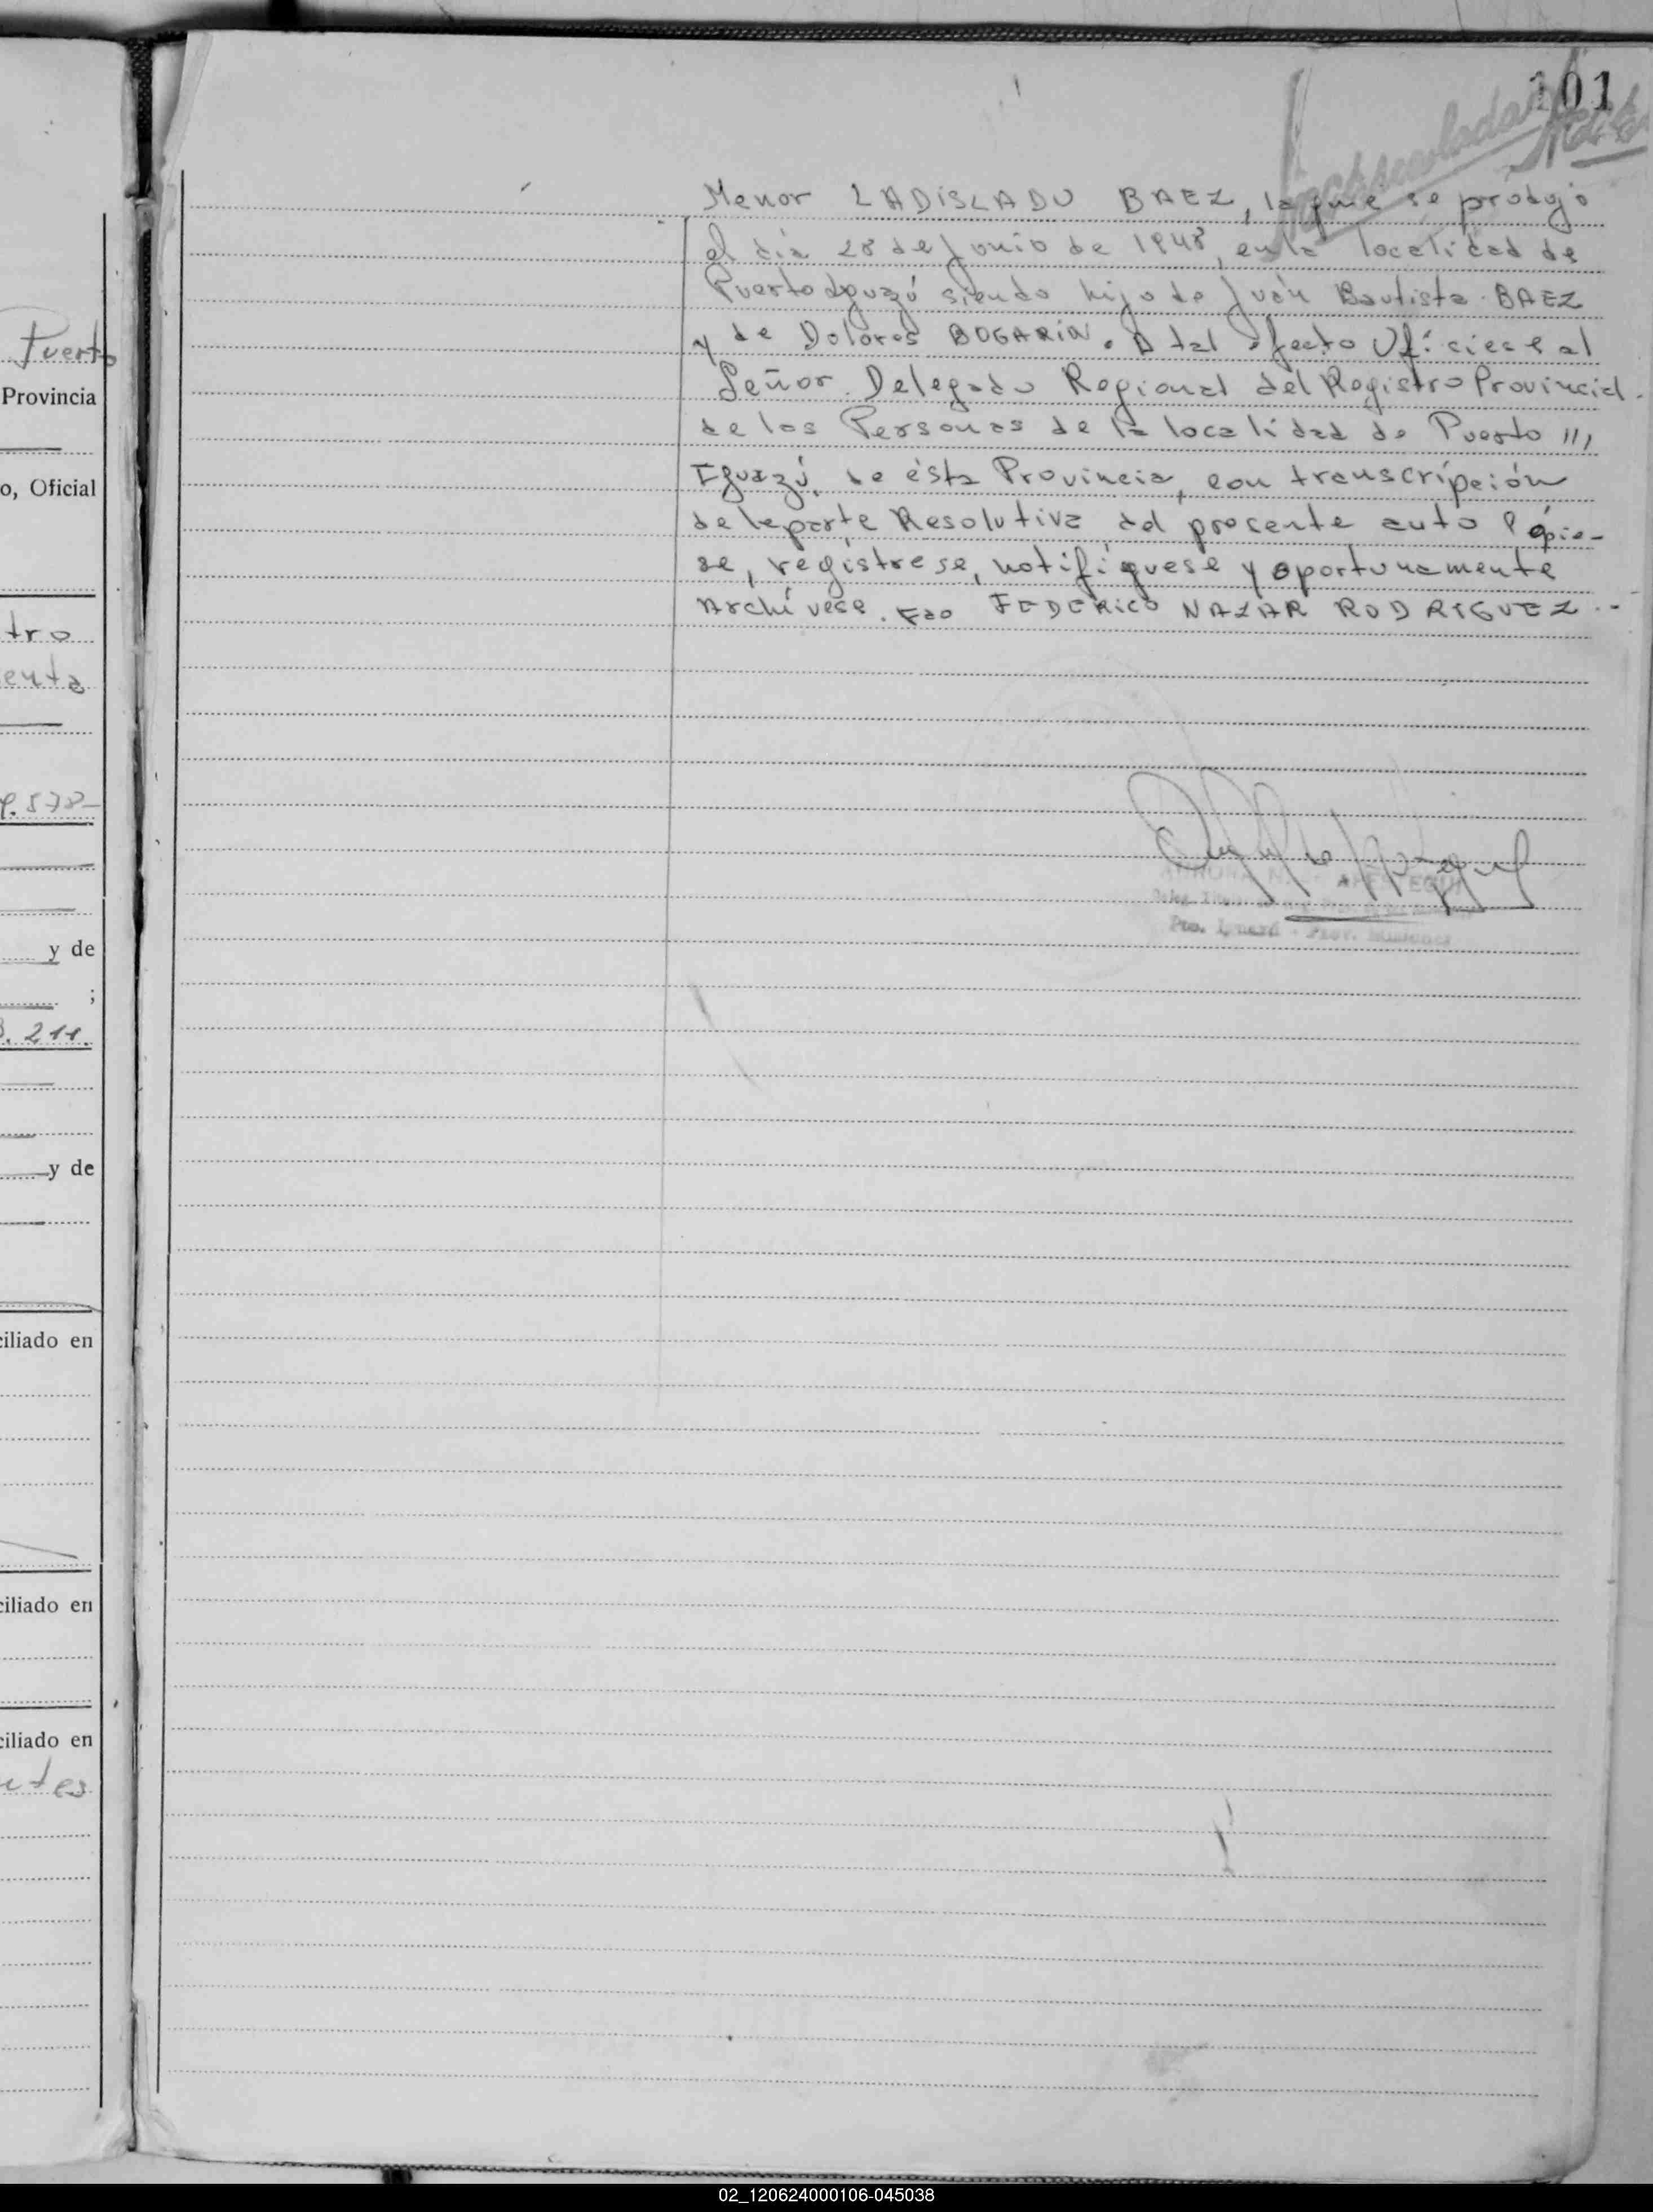 101
Menor LADISLADO BAEZ, la que se produjo
el dia 28 de Junio de 1948, en la localidad de
Puerto Iguazú siendo hijo de Juán Bautista BAEZ
y de Dolores BOGARÍN. A tal efecto Ofíciese al
Señor Delegado Regional del Registro Provincial
de las Personas de la localidad de Puerto ///
Iguazú, de ésta Provincia, con transcripción
de la parte Resolutiva del presente auto Cópie-
se, regístrese, notifíquese y oportunamente
Archívese. Fdo FEDERICO NAZAR RODRIGUEZ.-
Pto. Iguazú - Prov. Misiones
Puerto
Provincia
o, Oficial
tro
enta
578-
y de
;
211.
y de
ciliado en
ciliado en
ciliado en
ntes
02_120624000106-045038